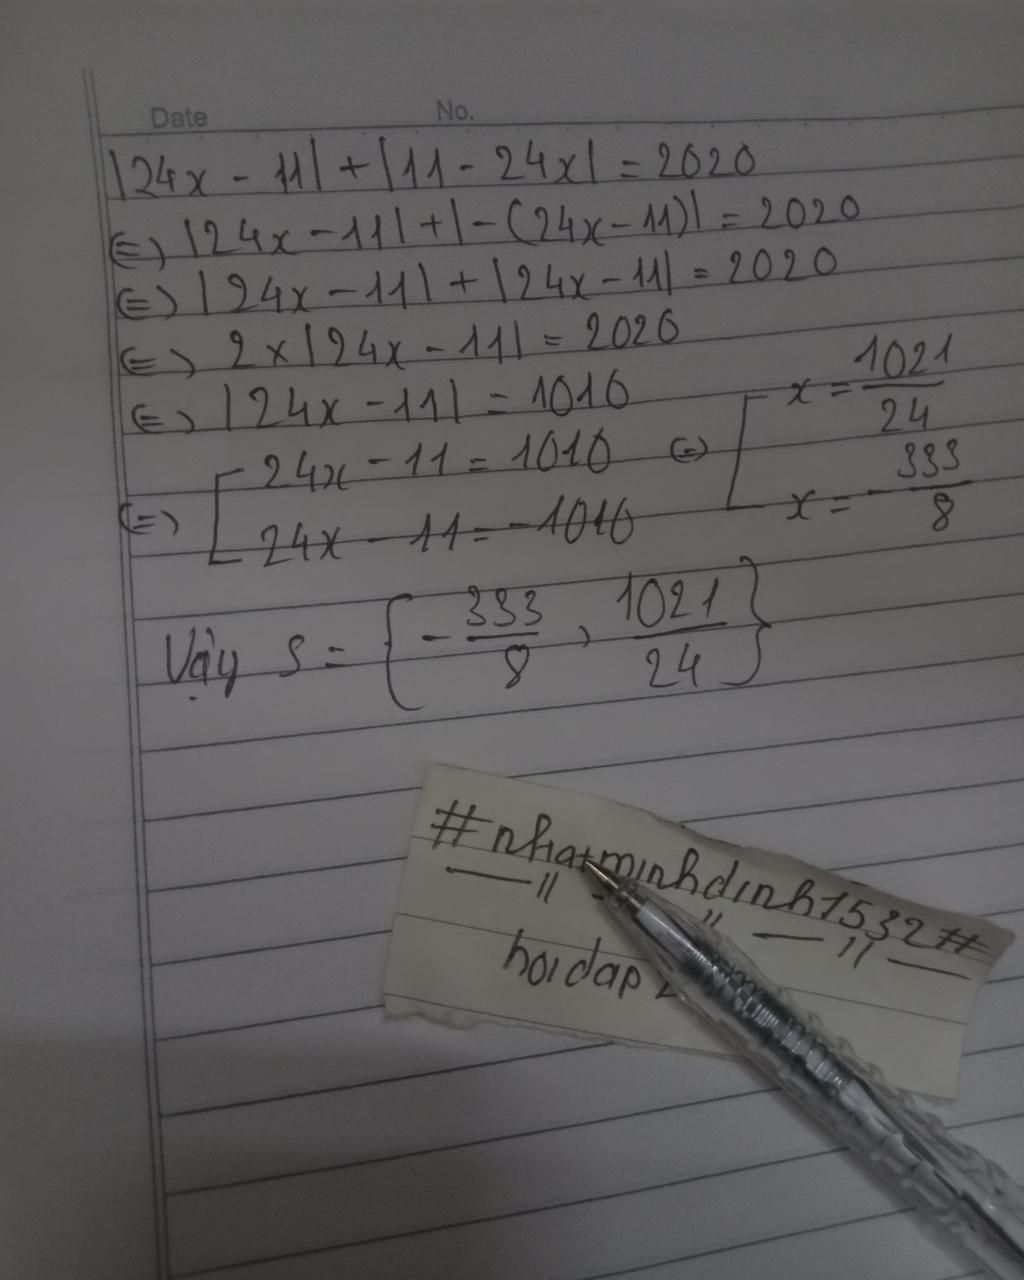 Date No.
|24x - 11| + |11 - 24x| = 2020
(=) |24x - 11| + |-(24x - 11)| = 2020
(=) |24x - 11| + |24x - 11| = 2020
(=) 2 x |24x - 11| = 2020
(=) |24x - 11| = 1010
(=) [ 24x - 11 = 1010 (=) [ x = 1021/24
24x - 11 = -1010 x = -333/8
Vậy S = { -333/8 , 1021/24 }
#nhatminhdinh1532#
hoidap